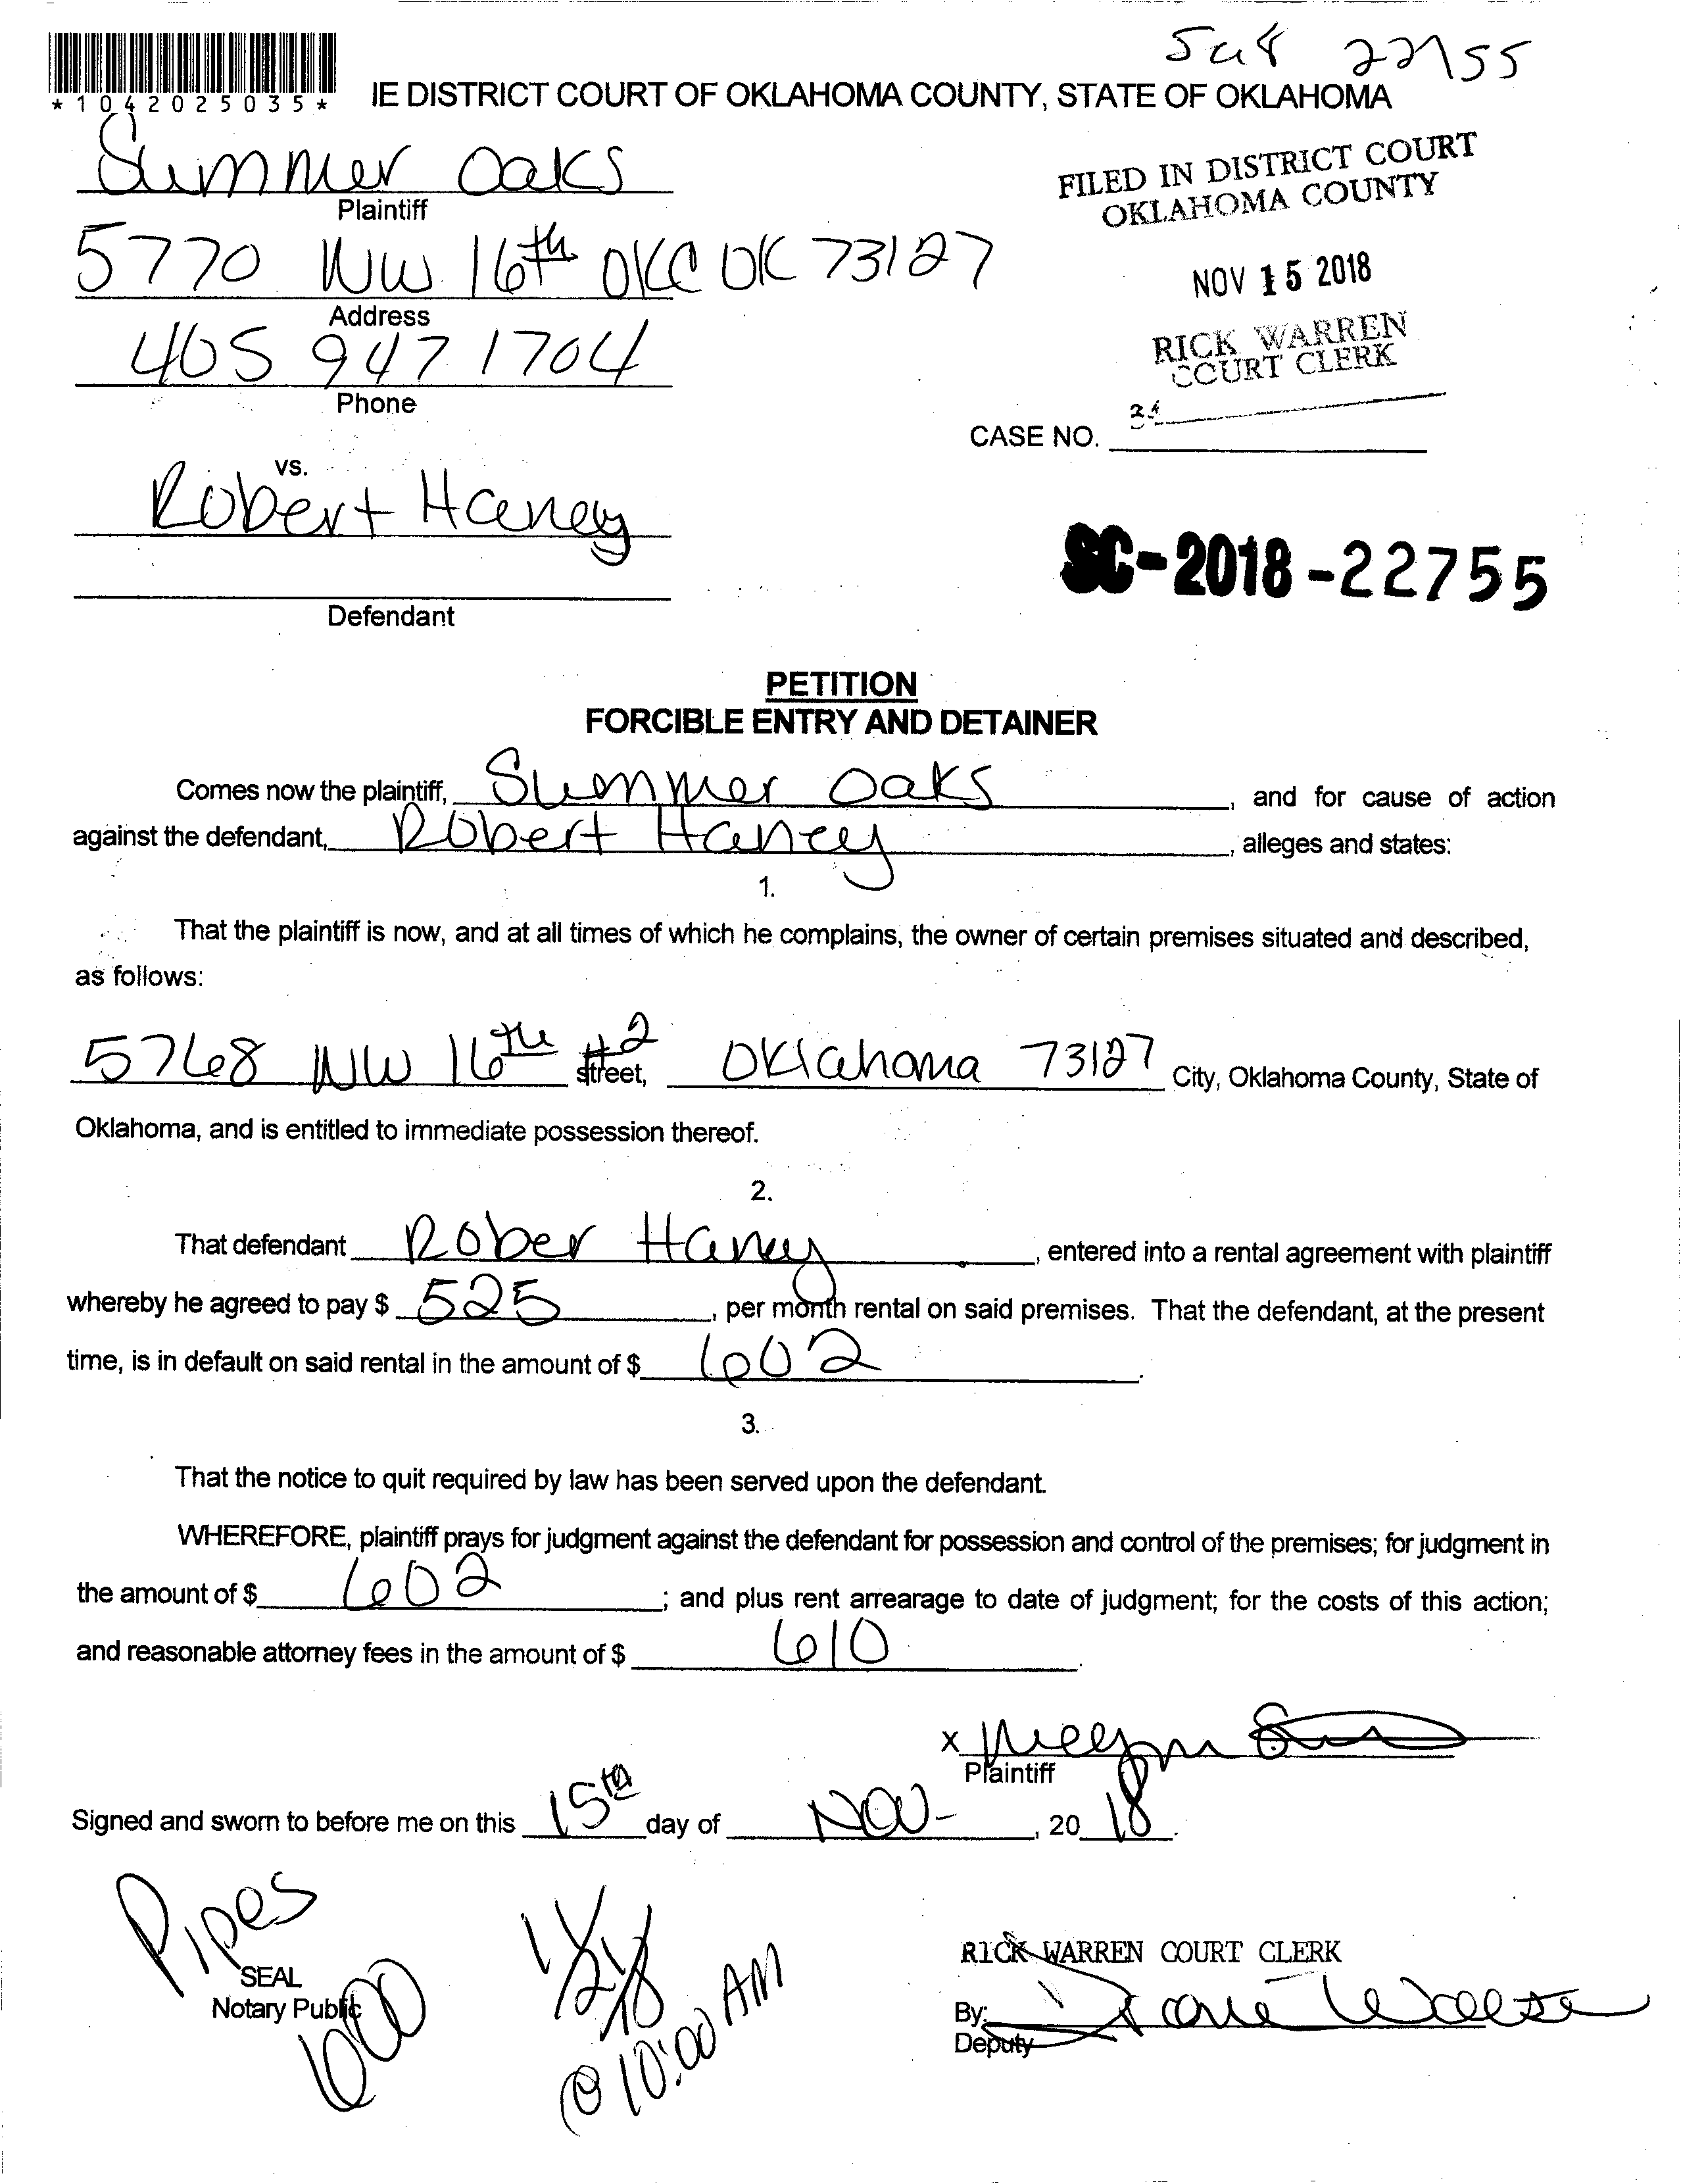 22755
*1042025035*
IE DISTRICT COURT OF OKLAHOMA COUNTY, STATE OF OKLAHOMA
Summer Oaks
Plaintiff
FILED IN DISTRICT COURT
OKLAHOMA COUNTY
5770 NW 16th OKC OK 73127
Address
NOV 15 2018
405 947 1704
Phone
RICK WARREN
COURT CLERK
CASE NO.
vs.
Robert Haney
SC-2018-22755
Defendant
PETITION
FORCIBLE ENTRY AND DETAINER
Comes now the plaintiff, Summer Oaks, and for cause of action
against the defendant, Robert Haney, alleges and states:
1.
That the plaintiff is now, and at all times of which he complains, the owner of certain premises situated and described,
as follows:
5768 NW 16th #2 street, Oklahoma 73127 City, Oklahoma County, State of
Oklahoma, and is entitled to immediate possession thereof.
2.
That defendant Rober Haney, entered into a rental agreement with plaintiff
whereby he agreed to pay $ 525, per month rental on said premises. That the defendant, at the present
time, is in default on said rental in the amount of $ 602.
3.
That the notice to quit required by law has been served upon the defendant.
WHEREFORE, plaintiff prays for judgment against the defendant for possession and control of the premises; for judgment in
the amount of $ 602; and plus rent arrearage to date of judgment; for the costs of this action;
and reasonable attorney fees in the amount of $ 610.
X
Plaintiff
Signed and sworn to before me on this 15th day of Nov-, 20 18.
Pipes
SEAL
Notary Public
600
@ 10:00 AM
RICK WARREN COURT CLERK
By:
Deputy